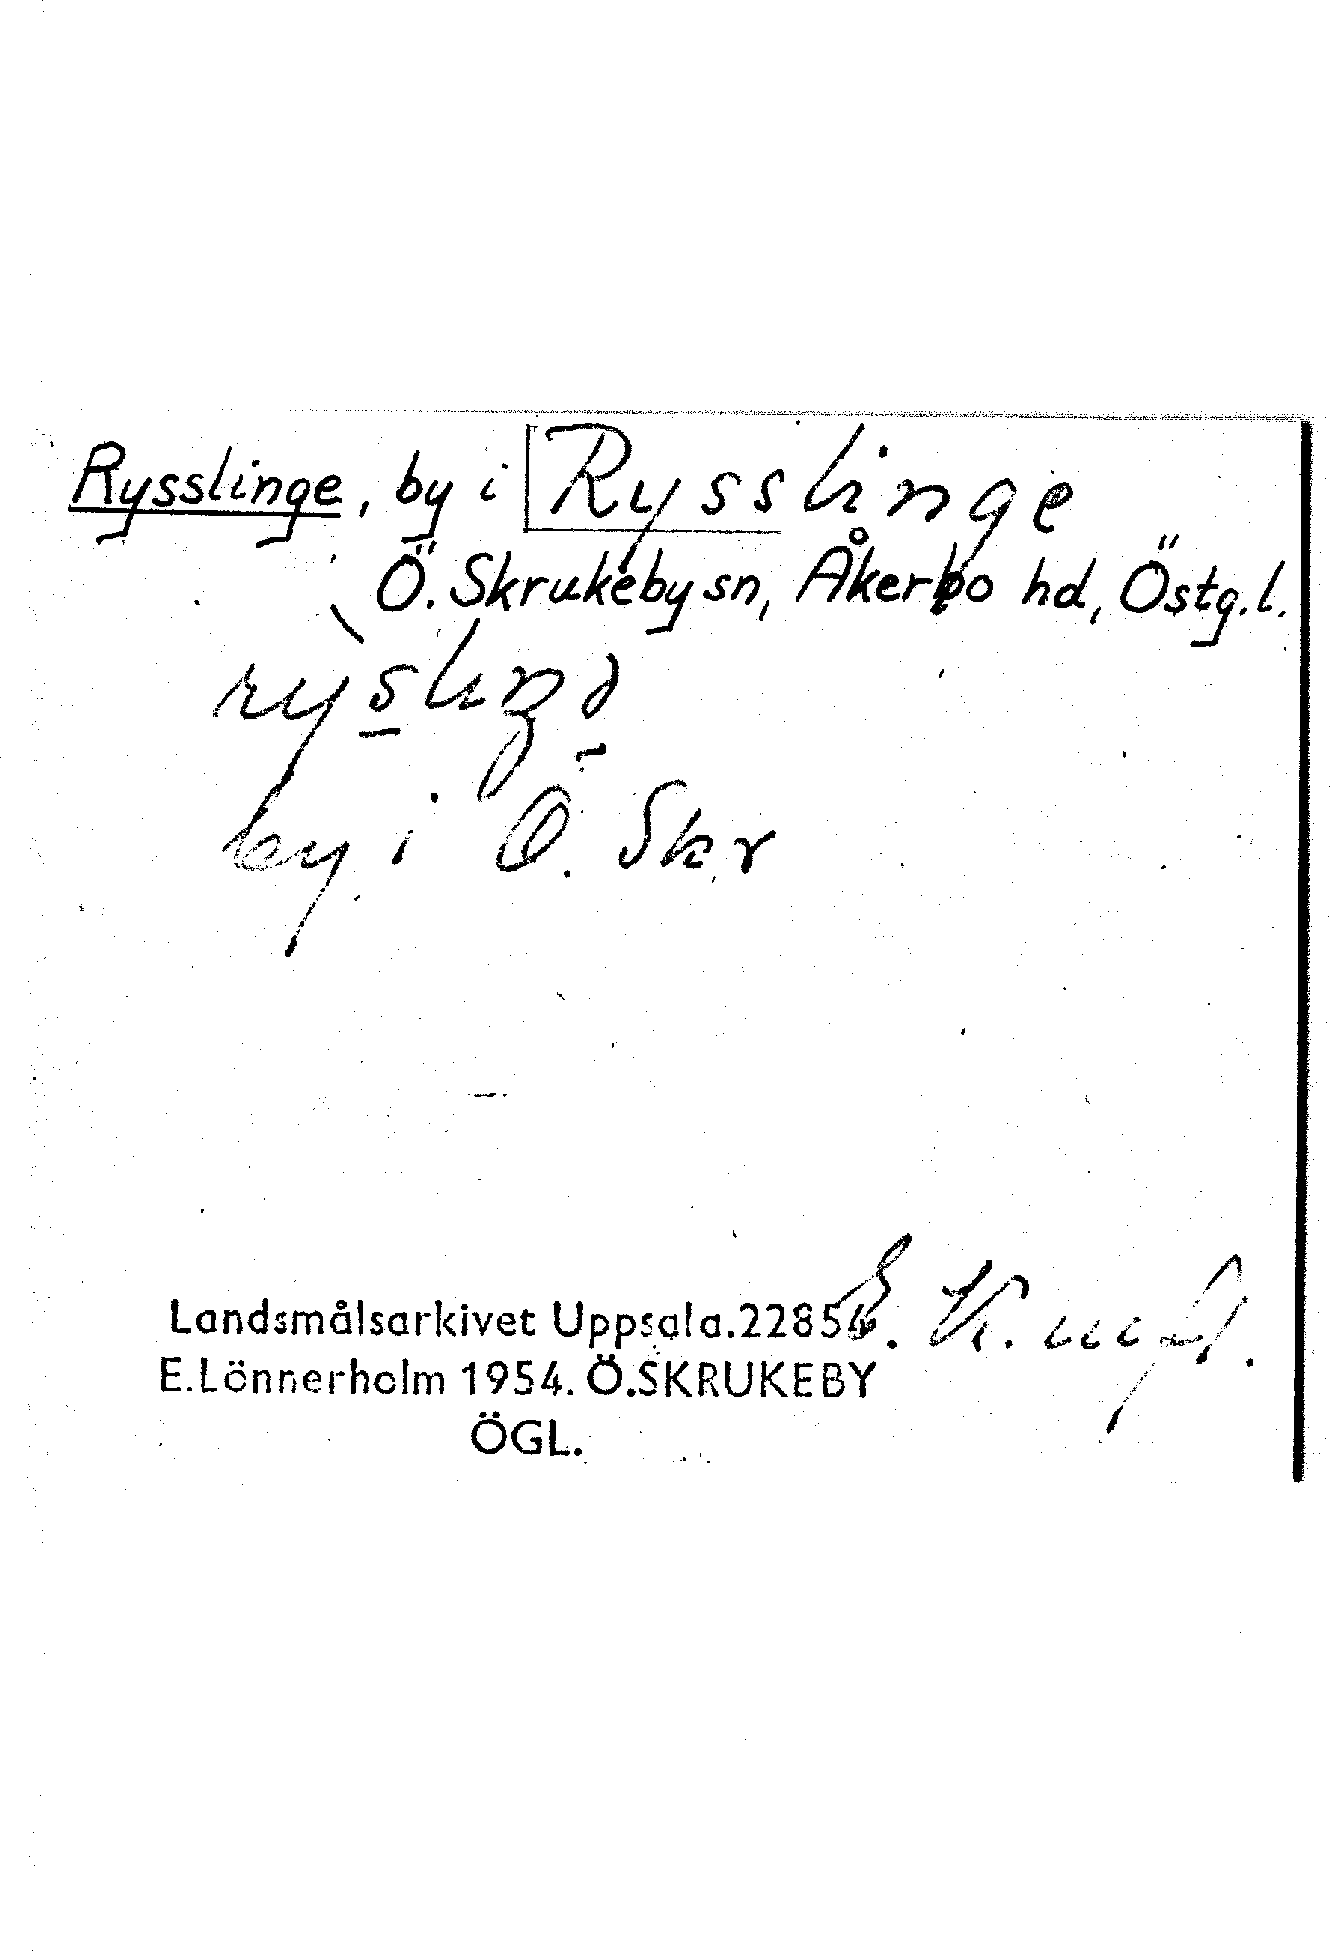 Rysslinge, by i Rysslinge
Ö. Skrukeby sn, Åkerbo hd, Östg.l.
rỳslıŋə
by i Ö. Skr
Landsmålsarkivet Uppsala.22856.
E.Lönnerholm 1954. Ö.SKRUKEBY
ÖGL.